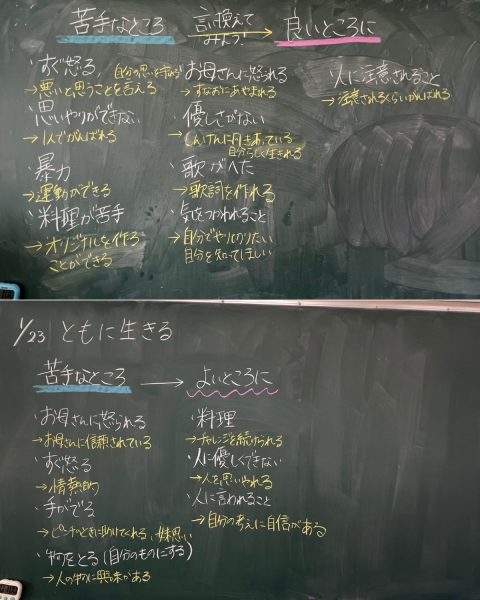 苦手なところ 言い換えてみよう! 良いところに
・すぐ怒る, 自分の思いを
→悪いと思うことを言える
・思いやりができない
→1人でがんばれる
・暴力
→運動ができる
・料理が苦手
→オリジナルを作る
ことができる
・お母さんに怒られる
→すなおにあやまれる
・優しさがない
→しんけんに向きあっている
自分らしく生きれる
・歌がへた
→歌詞を作れる
・気をつかわれること
→自分でやりとりたい
自分を知ってほしい
・人に注意されること
→注意されるくらいがんばれる
1/23 ともに生きる
苦手なところ → よいところに
・お母さんに怒られる
→お母さんに信頼されている
・すぐ怒る
→情熱的
・手がでる
→ピンチのときに助けてくれる、妹思い
・物をとる(自分のものにする)
→人の物に興味がある
・料理
→チャレンジを続けられる
・人に優しくできない
→人を思いやれる
・人に言われること
→自分の考えに自信がある